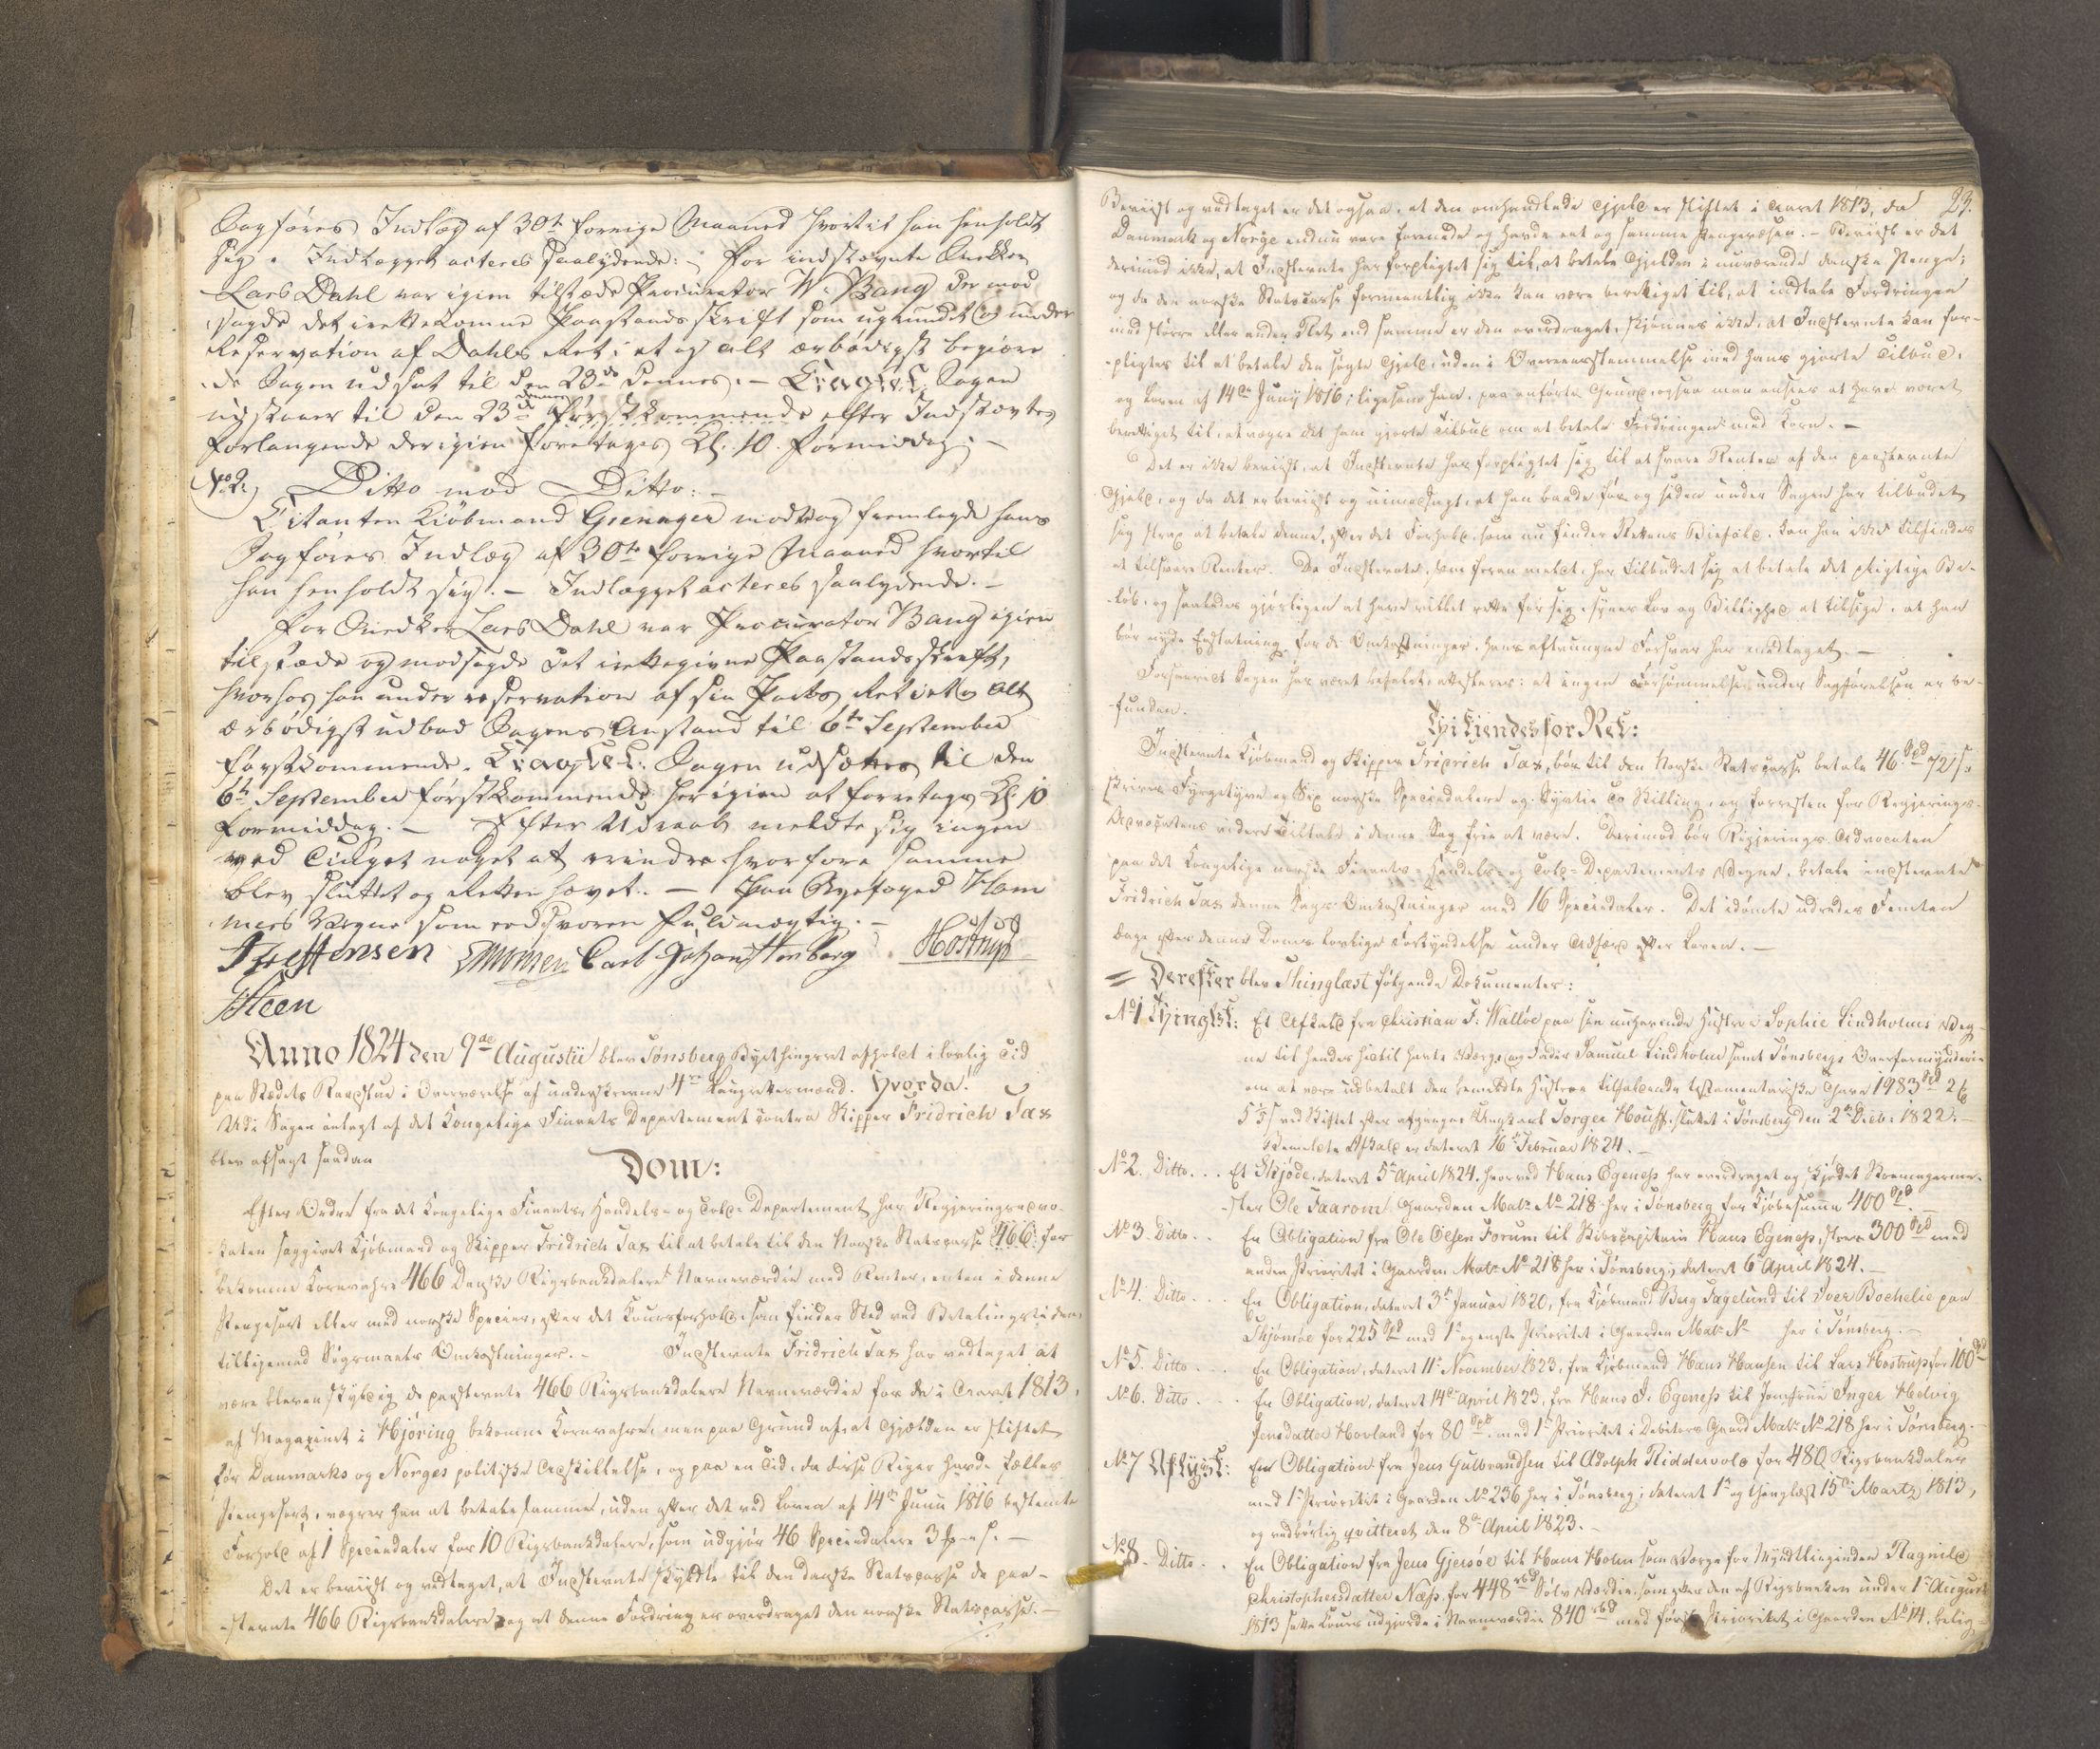 Sagføres Indlæg af 30te forrige Maaned hvortil han henholdt
sig. Indlægget acteres saalydende: – For indstævnte Snedker
Lars Dahl var igien tilstæde Procurator W. Bang der mod
sagde det irettekomne Paastandsskrift som ugrundet og under
Reservation af Dahls Ret i et og alt ærbødigst begiære
de Sagen udsat til den 23de dennes. – Eragtet. Sagen
udstaaer til den 23de dennes førstkommende efter Indstævntes
Forlangende der igien foretages Kl. 10 Formiddag. –
No 2. Ditto mod Ditto. –
Citanten Kiöbmand Grenager modtog fremlagde hans
Sagføres Indlæg af 30te forrige Maaned hvortil
han henholdt sig. – Indlægget acteres saalydende. –
For Snedker Lars Dahl var Procurator Bang igien
tilstæde og modsagde det irettegivne Paastandsskrift,
hvorhos han under reservation af sin Parts Ret i et og Alt
ærbødigst udbad Sagens Anstand til 6te September
førstkommende. Eragtet. Sagen udsættes til den
6te September førstkommende her igien at foretages Kl. 10
Formiddag. – Efter Udraab meldte sig ingen
ved Tinget noget at erindre hvorfore samme
blev sluttet og Retten hævet. – Paa Byefoged Flem
mers Vegne som eedsvoren Fuldmægtig. –
Steffensen Carl Johan Stenborg Hostrup
Steen
Anno 1824 den 9de Augustii blev Tønsberg Byethingsret afholdt i lovlig Tid
paa Stædets Raadstue i Overværelse af underskrevne 4re Laugrettesmænd. Hvorda!
Udi Sagen anlagt af det Kongelige Finants Departement contra Skipper Fridrich Fax
blev afsagt saadan
Dom:
Efter Ordre fra det Kongelige Finants, Handels- og Told-Departement har Regjeringsadvo-
katen saggivet Kjøbmand og Skipper Fridrich Fax til at betale til den Norske Statscasse 466 for
bekomne Kornvahre 466 Danske Rigsbankdalere Navneværdie med Renter, enten i denne
Pengesort eller med norske Specier, efter det Coursforhold, som finder Sted ved Betalingstiden,
tilligemed Søgsmaalets Omkostninger. – Indstevnte Fridrich Fax har vedtaget at
være bleven skyldig de paastevnte 466 Rigsbankdalere Navneværdie for de i Aaret 1813,
af Magazinet i Hjøring bekomne Kornvahre, men paa Grund af, at Gjælden er stiftet
før Danmarks og Norges politiske Adskillelse, og paa en Tid, da disse Riger havde fælles
Pengesort, vægrer han at betale samme, uden efter det ved Loven af 14de Junii 1816 bestemte
Forhold af 1 Speciedaler for 10 Rigsbankdalere, som udgjør 46 Speciedalere 3 – s. –
Det er beviist og vedtaget, at Indstevnte skyldte til den danske Statscasse de paa-
stevnte 466 Rigsbankdalere, og at denne Fordring er overdraget den norske Statscasse. –
23.
Beviist og vedtaget er det ogsaa, at den omhandlede Gjeld er stiftet i Aaret 1813, da
Danmark og Norge endnu vare forenede og havde eet og samme Pengevæsen. – Beviist er det
derimod ikke, at Indstevnte har forpligtet sig til, at betale Gjelden i nuværende danske Penge;
og da den norske Statscasse formeentlig ikke kan være berettiget til, at indtale Fordringen
med større eller anden Ret, end samme er den overdraget, skjønnes ikke, at Indstevnte kan for-
pligtes til at betale den søgte Gjeld, uden i Overeensstemmelse med hans gjorte Tilbud,
og Loven af 14de Junij 1816; ligesom han, paa anførte Grund, ogsaa maa ansees at have været
berettiget til, at vægre det ham gjorte Tilbud om at betale Fordringen med Korn. –
Det er ikke beviist, at Indstevnte har forpligtet sig til at svare Renter af den paastevnte
Gjeld, og da det er beviist og uimodsagt, at han baade før og siden under Sagen har tilbudet
sig strax at betale denne, efter det Forhold, som nu finder Rettens Biefald, kan han ikke tilfindes
at tilsvare Renter. Da Indstevnte, som foran meldt, har tilbudet sig at betale det pligtige Be-
løb, og saaledes gjerligen at have villet rette for sig, synes Lov og Billighed at tilsige, at han
bør nyde Erstatning for de Omkostninger, hans aftvungne Forsvar har medtaget. –
Forsaavidt Sagen har været befalet, attesteres: at ingen Forsømmelse under Sagførelsen er be-
funden.
Thi Kjendes for Ret:
Indstevnte Kjøbmand og Skipper Fridrich Fax, bør til den Norske Statscasse betale 46 Spd 72 s.
skriver Fyrgetyve og Sex norske Speciedalere og Sytti To Skilling, og forresten for Regjerings-
Advocatens videre Tiltale i denne Sag frie at være. Derimod bør Regjerings Advocaten
paa det Kongelige norske Finants- Handels- og Told-Departements Vegne, betale indstevnte
Fridrich Fax denne Sags Omkostninger med 16 Speciedaler. Det idømte udredes Femten
Dage efter denne Doms lovlige Forkyndelse under Adfærd efter Loven. –
= Derefter blev Thinglæst følgende Dokumenter:
No 1 Thinglæst: Et Afkald fra Christian F. Walløe paa sin nuhavende Hustroe Sophie Lindholms Veg-
ne til hendes hidtil havte Værge og Fader Samuel Lindholm samt Tønsbergs Overformynderie
om at være udbetalt den bemeldte Hustroe tilfaldende testamentariske Gave 1983 Spd 2
5 3/5 s ved Skiftet efter afgangne Enkefrue Torger Houff, sluttet i Tønsberg den 2den Decbr 1822. –
Bemeldte Afkald er dateret 16de Februar 1824. –
No 2. Ditto... Et Skjøde, dateret 5te April 1824, hvorved Hans Egeness har overdraget og skjødet Skoemagerme-
ster Ole Faarom Gaarden Matr. No 218 her i Tønsberg for Kjøbesumma 400 Spd. –
No 3. Ditto.. En Obligation fra Ole Olsen Forum til Skibscapitain Hans Egeness, stor 300 Spd med
anden Prioritet i Gaarden Matr. No 218 her i Tønsberg, dateret 6te April 1824. –
No 4. Ditto... En Obligation, dateret 3die Januar 1820, fra Kjøbmand Berg Fagelund til Iver Bochelie paa
Thjømøe for 225 Spd med 1ste og eneste Prioritet i Gaarden Matr. No her i Tønsberg. –
No 5. Ditto... En Obligation, dateret 11te November 1823, fra Kjøbmand Hans Hansen til Lars Hostrup for 100 Spd
No 6. Ditto... En Obligation, dateret 14de April 1823, fra Hans J. Egeness til Jomfrue Inger Hedvig
Jensdatter Hovland for 80 Spd med 1ste Prioritet i Debitors Gaard Matr. No 218 her i Tønsberg. –
No 7 Aflyst: En Obligation fra Jens Gulbrandsen til Adolph Riddervold for 480 Rigsbankdaler
med 1ste Prioritet i Gaarden No 236 her i Tønsberg, dateret 1ste og thinglæst 15de Martz 1813,
og vedbørlig qvitteret den 8de April 1823. –
No 8. Ditto.. En Obligation fra Jens Gjersøe til Hans Holm som Værge for Myndtlinginden Ragnild
Christophersdatter Næss, for 448 rbd Sølv Værdie, som efter den af Rigsbanken under 1ste August
1813 satte Cours udgjorde i Navneværdie 840 rbd med første Prioritet i Gaarden No 14, belig-